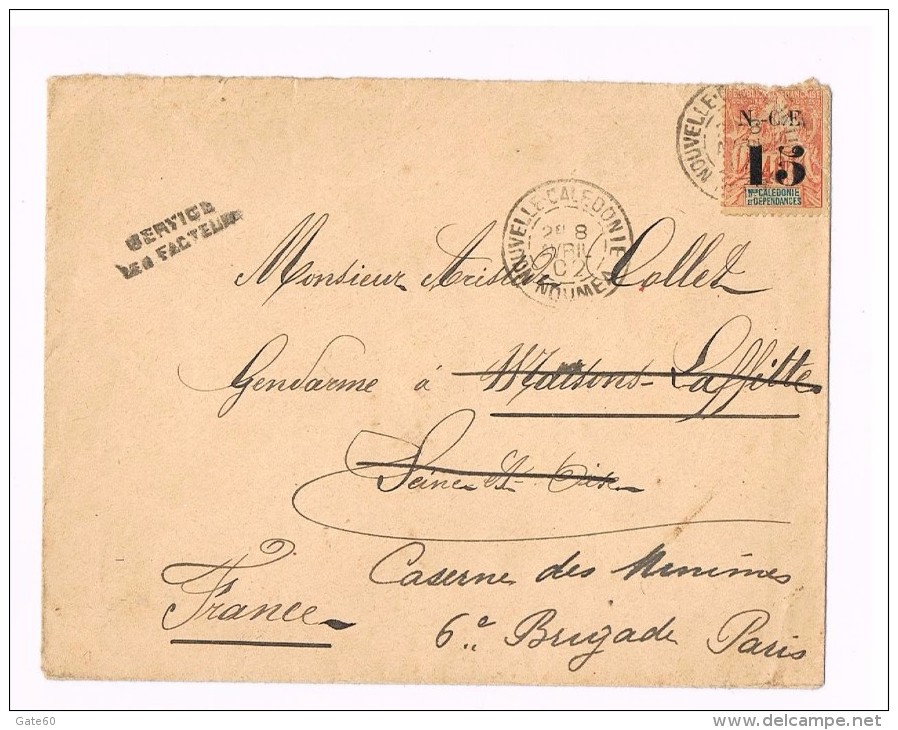 N.-C.E.
15
Nlle CALEDONIE
ET DEPENDANCES
NOUVELLE-CALEDONIE
8
AVRIL
02
NOUMEA
NOUVELLE-C
SERVICE
DES FACTEURS
Monsieur Aristide Collet
Gendarme à Maisons-Laffitte
Seine-et-Oise
Caserne des Minimes
France
6e Brigade Paris
Gate60
www.delcampe.net